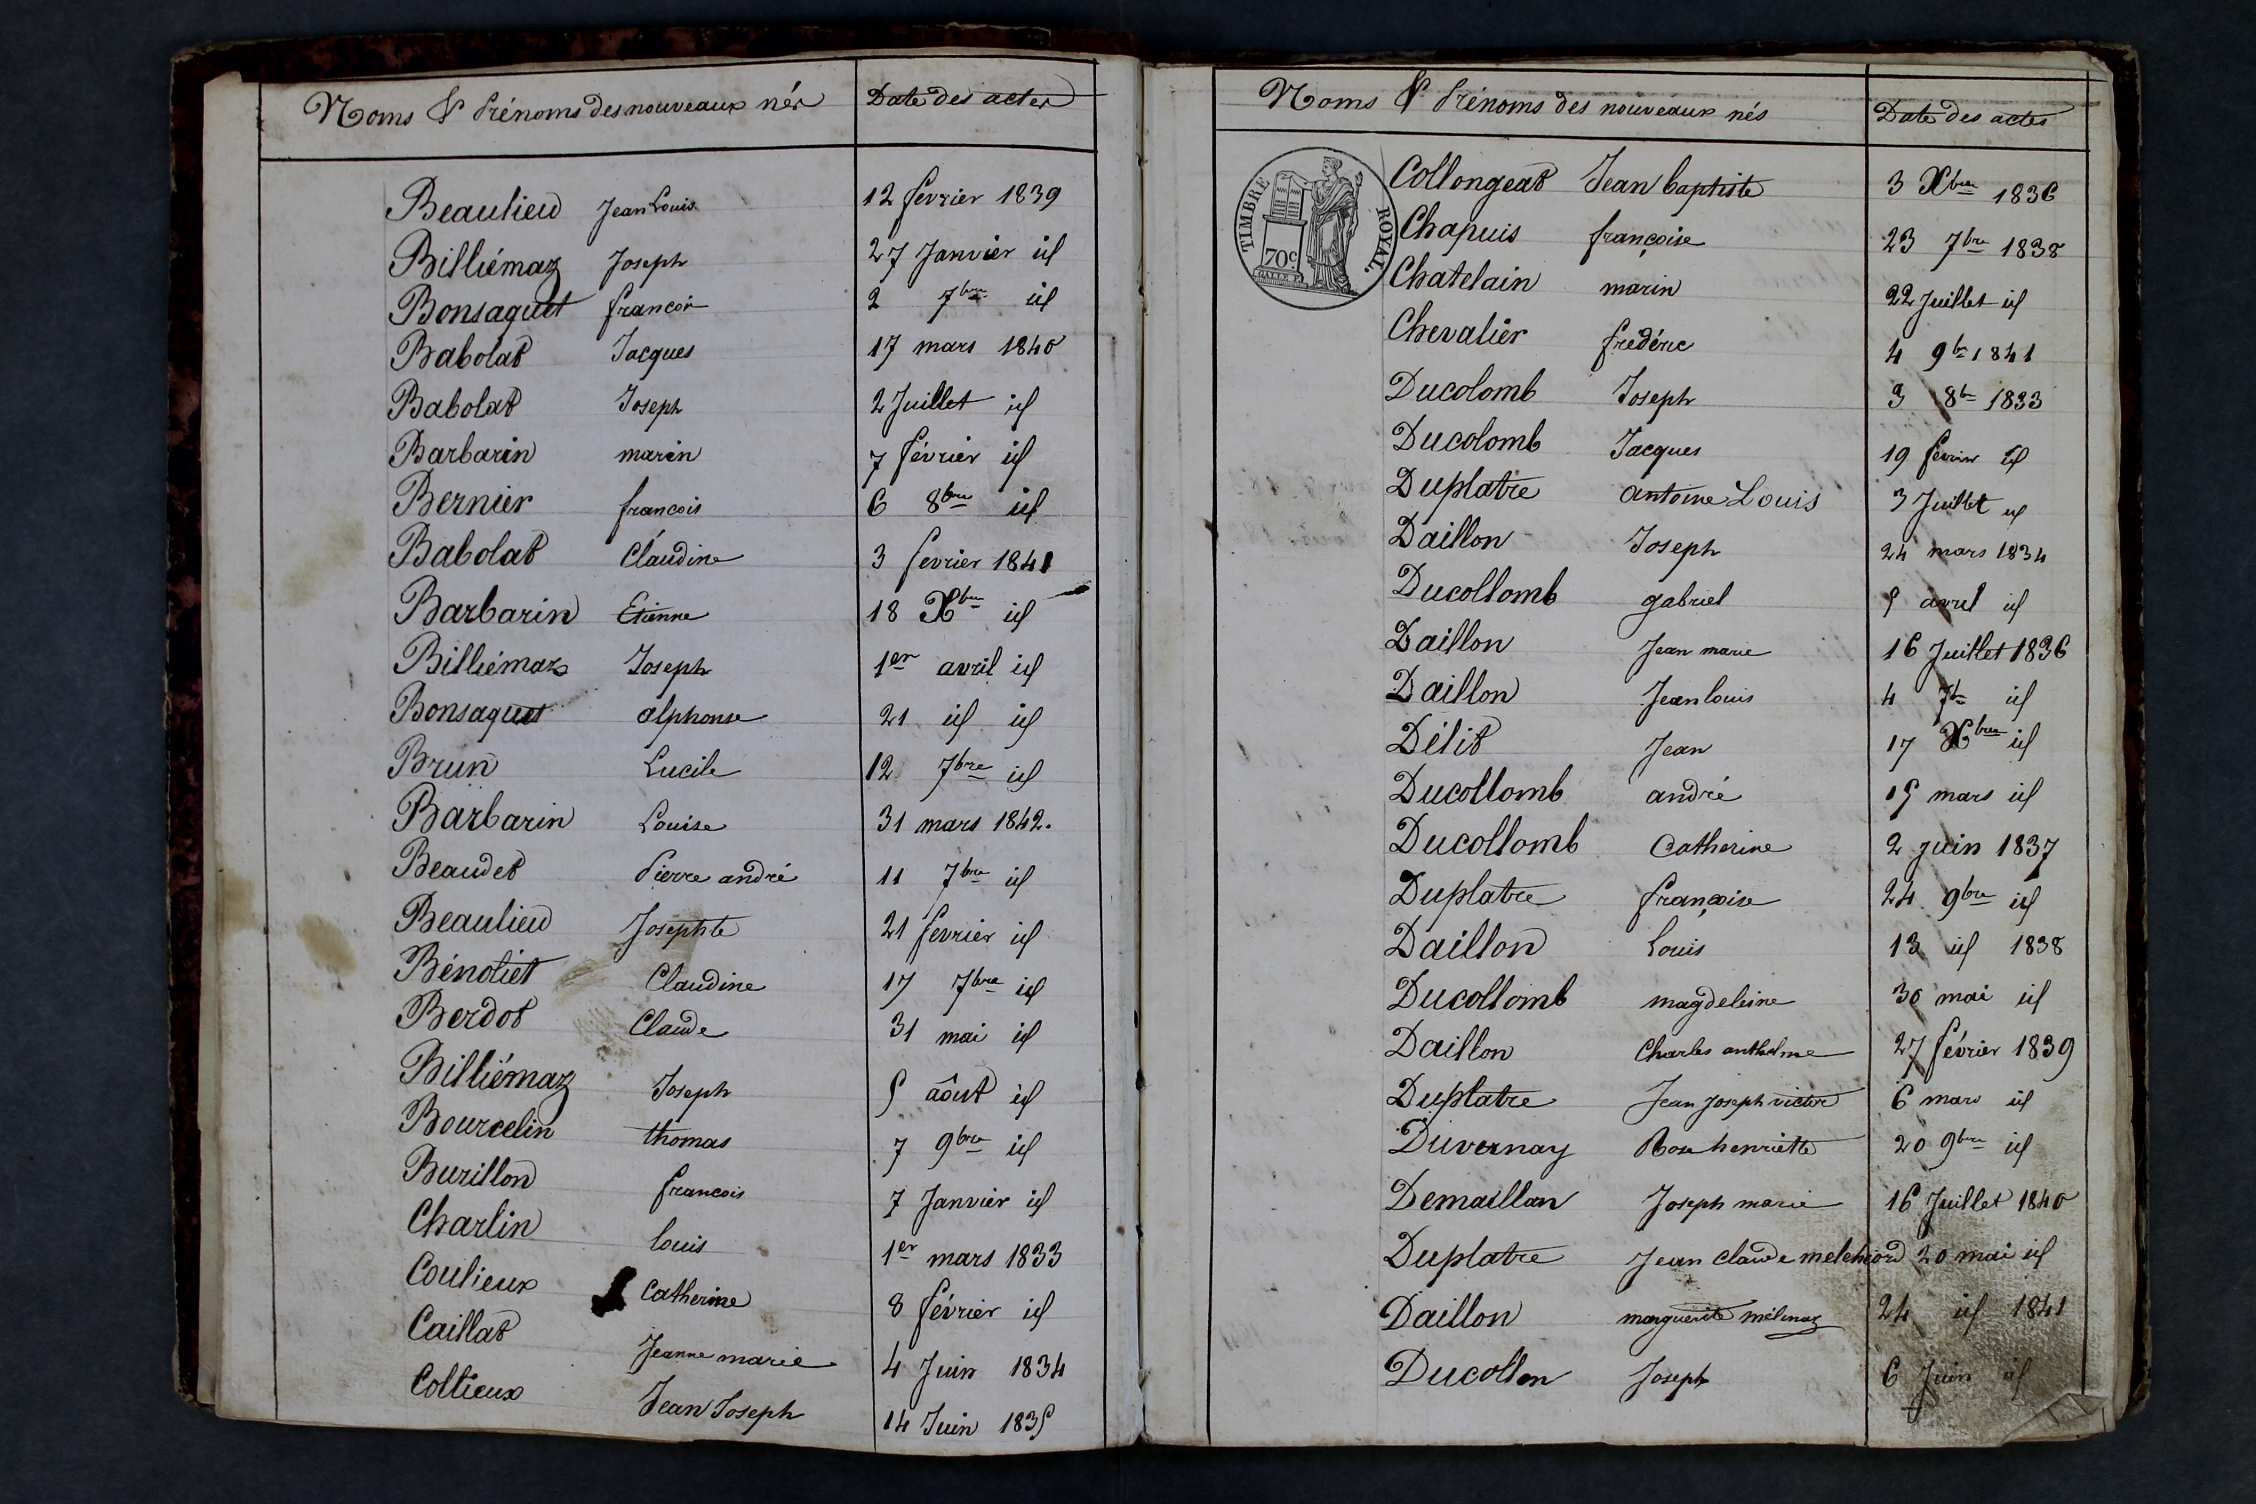 Noms & Prénoms des nouveaux nés Date des actes
Beaulieu Jean Louis 12 fevrier 1839
Billiémaz Joseph 27 Janvier id
Bonsaquet francois 2 7bre id
Babolat Jacques 17 mars 1840
Babolat Joseph 2 Juillet id
Barbarin marin 7 février id
Bernier francois 6 8bre id
Babolat Claudine 3 fevrier 1841
Barbarin Etienne 18 Xbre id
Billiémaz Joseph 1er avril id
Bonsaquet alphonse 21 id id
Brun Lucile 12 7bre id
Barbarin Louise 31 mars 1842.
Beaudet Pierre andré 11 7bre id
Beaulieu Josephte 21 fevrier id
Bénoliet Claudine 17 7bre id
Berdot Claude 31 mai id
Billiémaz Joseph 5 aôut id
Bourcelin thomas 7 9bre id
Burillon francois 7 Janvier id
Charlin louis 1er mars 1833
Coulieux Catherine 8 février id
Caillat Jeanne marie 4 Juin 1834
Collieux Jean Joseph 14 Juin 1835
Noms & Prénoms des nouveaux nés Date des actes
TIMBRE ROYAL.
70c
Collongeat Jean baptiste 3 Xbre 1836
Chapuis françoise 23 7bre 1838
Chatelain marin 22 Juillet id
Chevalier frédéric 4 9bre 1841
Ducolomb Joseph 3 8bre 1833
Ducolomb Jacques 19 fevrier id
Duplatre antoine Louis 3 Juillet id
Daillon Joseph 24 mars 1834
Ducollomb gabriel 5 avril id
Daillon Jean marie 16 Juillet 1836
Daillon Jean louis 4 7bre id
Délit Jean 17 Xbre id
Ducollomb andré 15 mars id
Ducollomb Catherine 2 juin 1837
Duplatre françoise 24 9bre id
Daillon Louis 13 id 1838
Ducollomb magdeleine 30 mai id
Daillon Charles anthelme 27 février 1839
Duplatre Jean Joseph victor 6 mars id
Duvernay Rose henriette 20 9bre id
Demaillan Joseph marie 16 Juillet 1840
Duplatre Jean claude melchiord 20 mai id
Daillon marguerite mélinaz 24 id 1841
Ducollon Joseph 6 Juin id